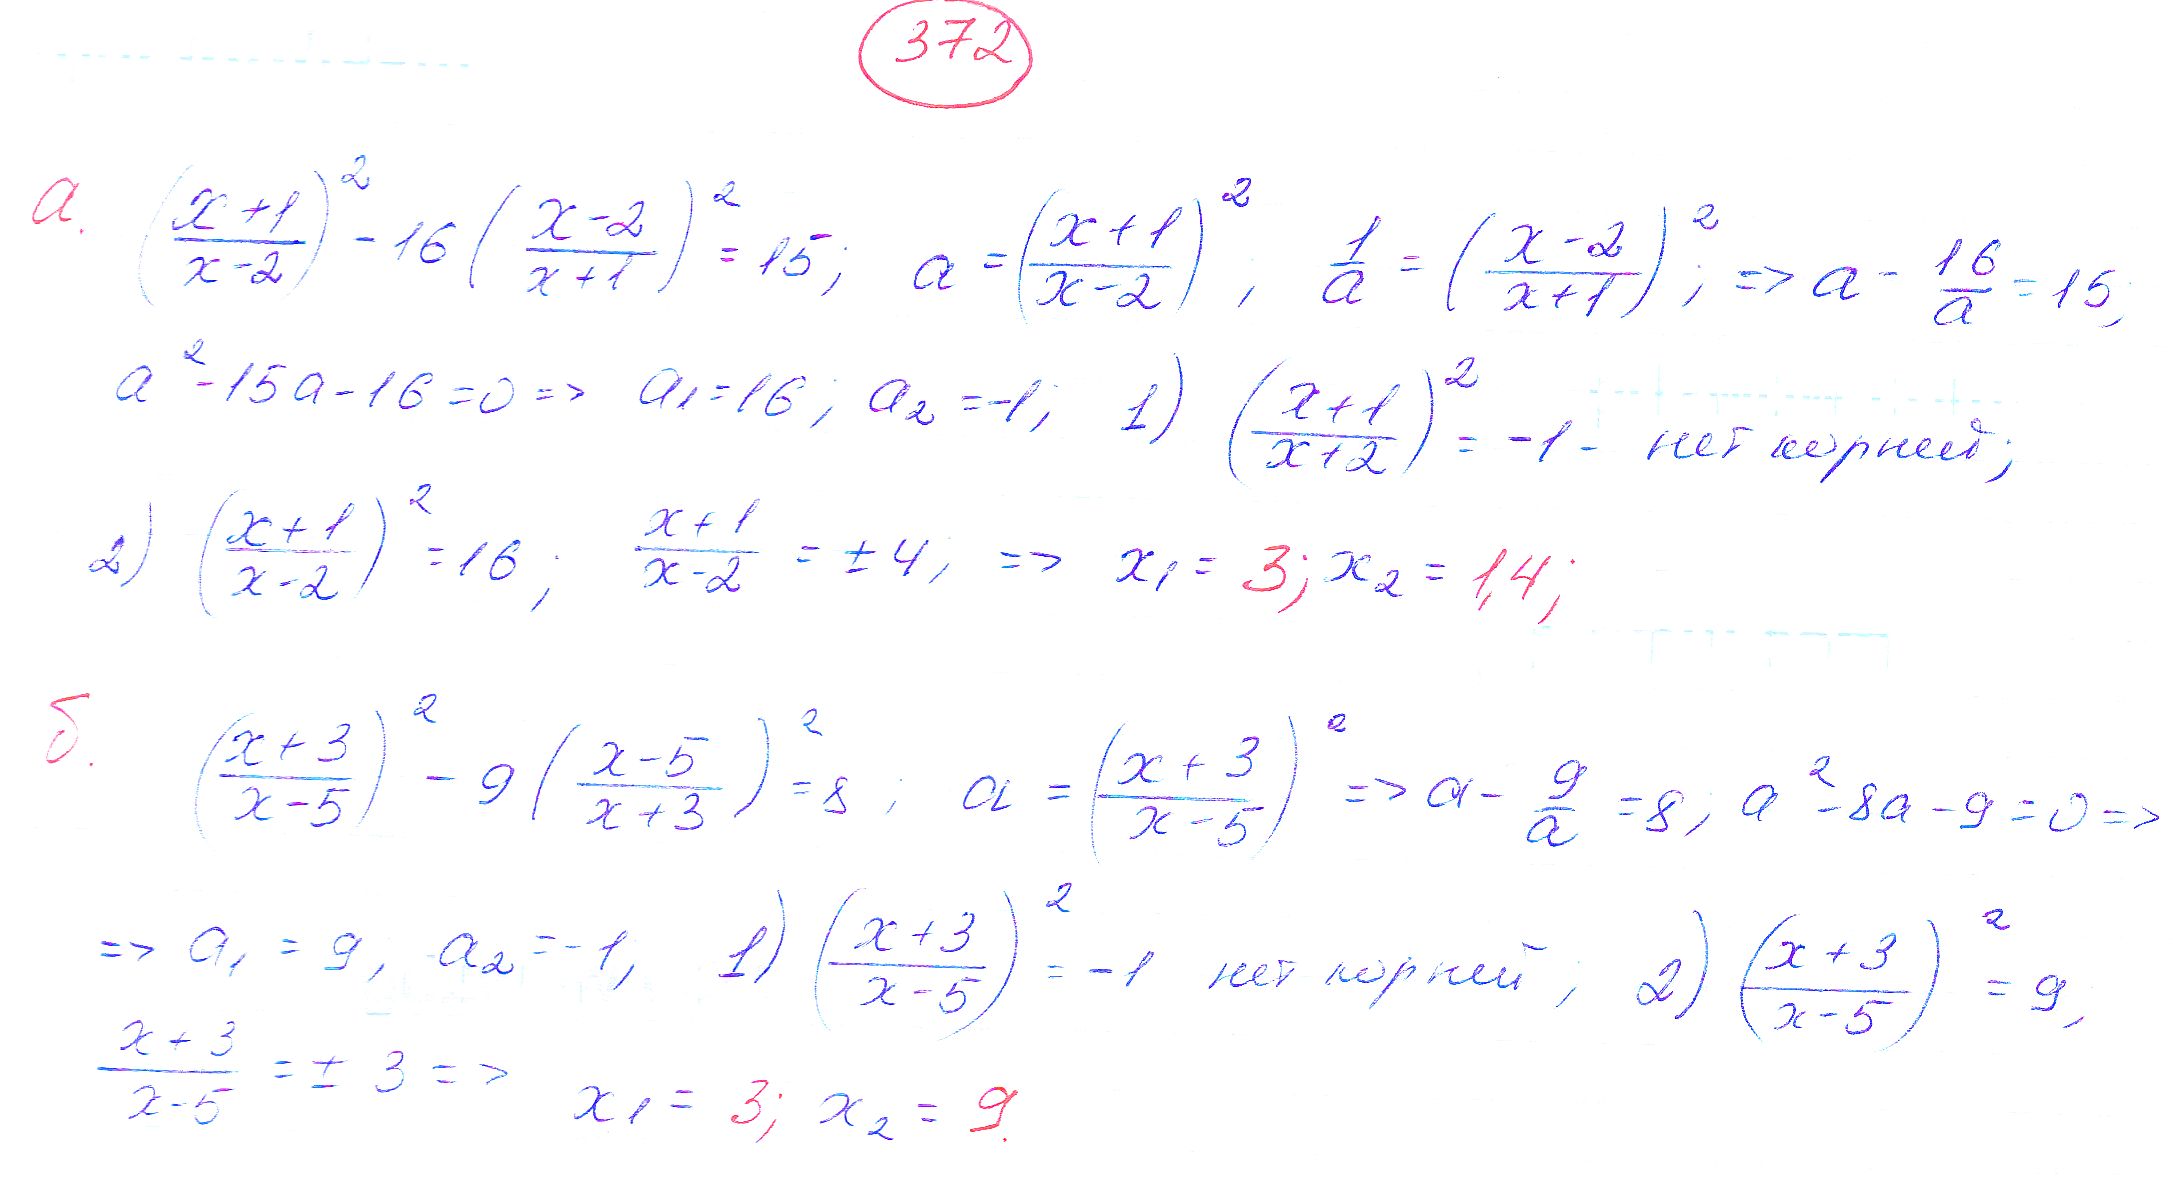 372
а. ((x+1)/(x-2))² - 16((x-2)/(x+1))² = 15; a = ((x+1)/(x-2))², 1/a = ((x-2)/(x+1))²; => a - 16/a = 15;
a² - 15a - 16 = 0 => a₁ = 16; a₂ = -1; 1) ((x+1)/(x+2))² = -1 - нет корней;
2) ((x+1)/(x-2))² = 16; (x+1)/(x-2) = ±4, => x₁ = 3; x₂ = 1,4;
б. ((x+3)/(x-5))² - 9((x-5)/(x+3))² = 8; a = ((x+3)/(x-5))² => a - 9/a = 8; a² - 8a - 9 = 0 =>
=> a₁ = 9, a₂ = -1, 1) ((x+3)/(x-5))² = -1 нет корней; 2) ((x+3)/(x-5))² = 9,
(x+3)/(x-5) = ±3 => x₁ = 3; x₂ = 9.